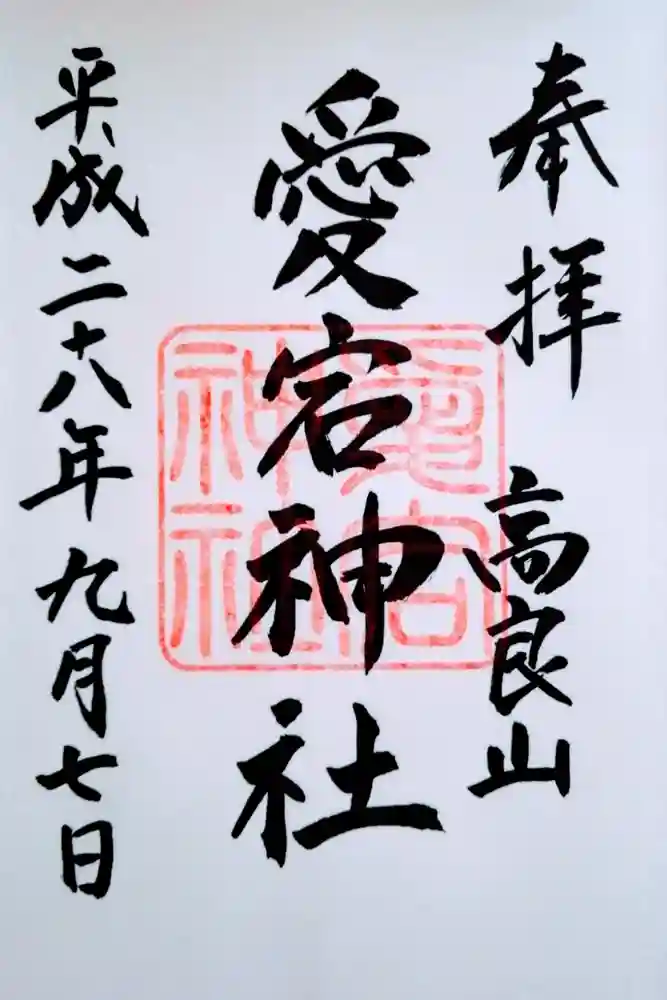 奉拝 高良山
愛宕神社
平成二十八年九月七日
愛宕
神社